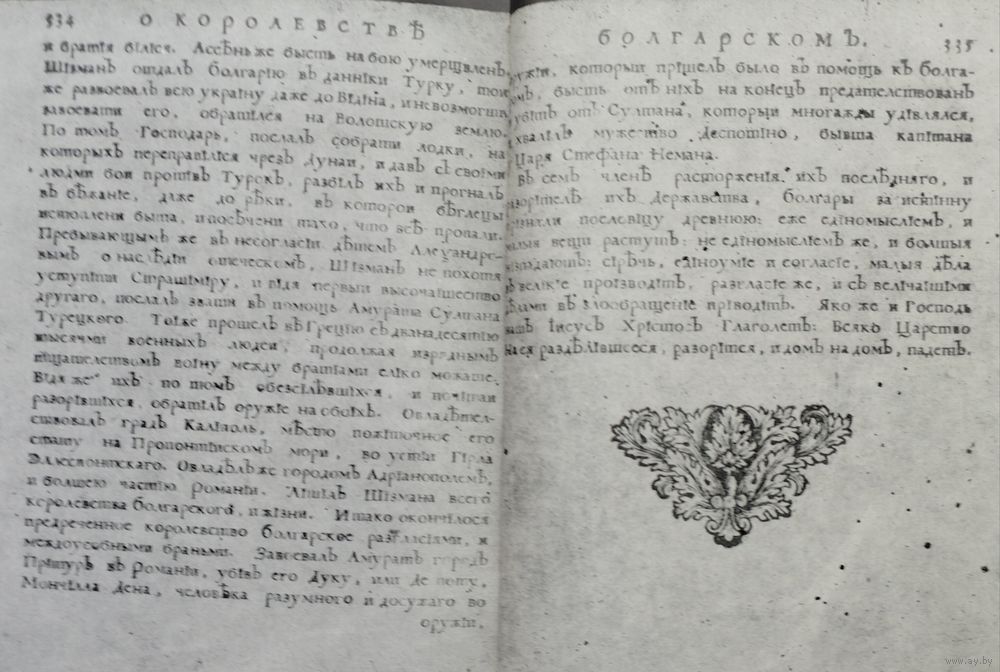 334 О КОРОЛЕВСТВѢ
и братїя бїлїся. Асѣнь же бысть на бою умерщвленъ,
Шїзманъ отдалъ болгарїю въ даннїки Турку, тои
же развоевалъ всю україну даже до Вїдїна, и невозмогши
завоевати его, обратїлся на Волошскую землю.
По томъ Господарь, послалъ собрати лодки, на
которыхъ переправїлїся чрезъ Дунаи, и давъ съ своїми
людми бои протївъ Турскъ, разбїлъ їхъ и прогналъ
въ бѣжанїе, даже до рѣки, въ которои бѣглецы
истоплени быша, и посѣчени тако, что всѣ пропали.
Пребывающымъ же въ несогласїи дѣтемъ Алеѯандро-
вымъ о наслѣдїи отеческомъ, Шїзманъ не похотя
уступїти Страшїмїру, и вїдя первыи высочаїшество
другаго, послалъ звати въ помощь Амурата Султана
Турецкого. Тоїже прошелъ въ Грецїю съ дванадесятїю
тысячми военныхъ людеи, продолжая изряднымъ
тщателствомъ воїну между братїами елїко можаше.
Вїдя же їхъ по томъ обезсїлѣвшїхся, и почїтаи
разорївшїхся, обратїлъ оружїе на обоїхъ. Овладѣтел-
ствовалъ градъ Калїполь, мѣсто пожїточное его
стату на Пропонтїискомъ мори, во устїи Гїрла
Эллеспонтскаго. Овладѣлъ же городомъ Адрїанополемъ,
и болшею частїю Романїи. Лїшїлъ Шїзмана всего
королевства болгарского, и жїзни. И тако окончїлося
предреченное королевство болгарское разгласїями, и
междоусобными браньми. Завоевалъ Амуратъ городъ
Прїтуръ въ Романїи, убївъ его Дуку, или де поту,
Мончїлла Дена, человѣка разумного и досужаго во
оружїи,
БОЛГАРСКОМЪ. 335
оружїи, которыи прїшелъ было въ помощь къ болга-
ромъ, бысть отъ нїхъ на конецъ предателствованъ
убїтъ отъ Султана, которыи многажды удївлялся,
хвалїлъ мужество Деспотїно, бывша капїтана
Царя Стефана Немана.
Въ семъ членѣ расторженїя їхъ послѣдняго, и
разорїтелѣ їхъ Державства, болгары за истїнну
прїзнали пословїцу древнюю: еже едїномыслїемъ, и
малыя вещи растутъ: не едїномыслїемъ же, и болшыя
сїрѣчь, едїноумїе и согласїе, малыя дѣла
въ велїкїе проїзводїтъ, разгласїе же, и съ велїчаїшїми
дѣлами въ злообращенїе прїводїтъ. Яко же и Господь
нашъ Їисусъ Хрїстосъ Глаголетъ: Всяко Царство
на ся раздѣлївшееся, разорїтся, и домъ на домъ, падетъ.
www.ay.by